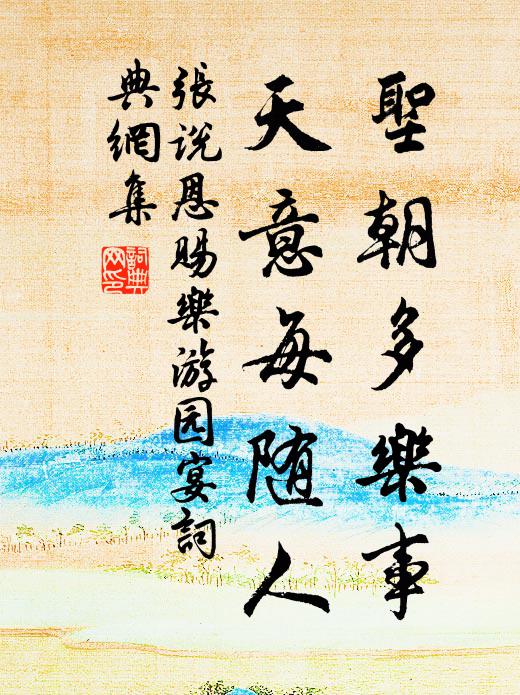 聖朝多樂事
天意每随人
張說恩賜樂游园宴詞
典網集
詞典
网印